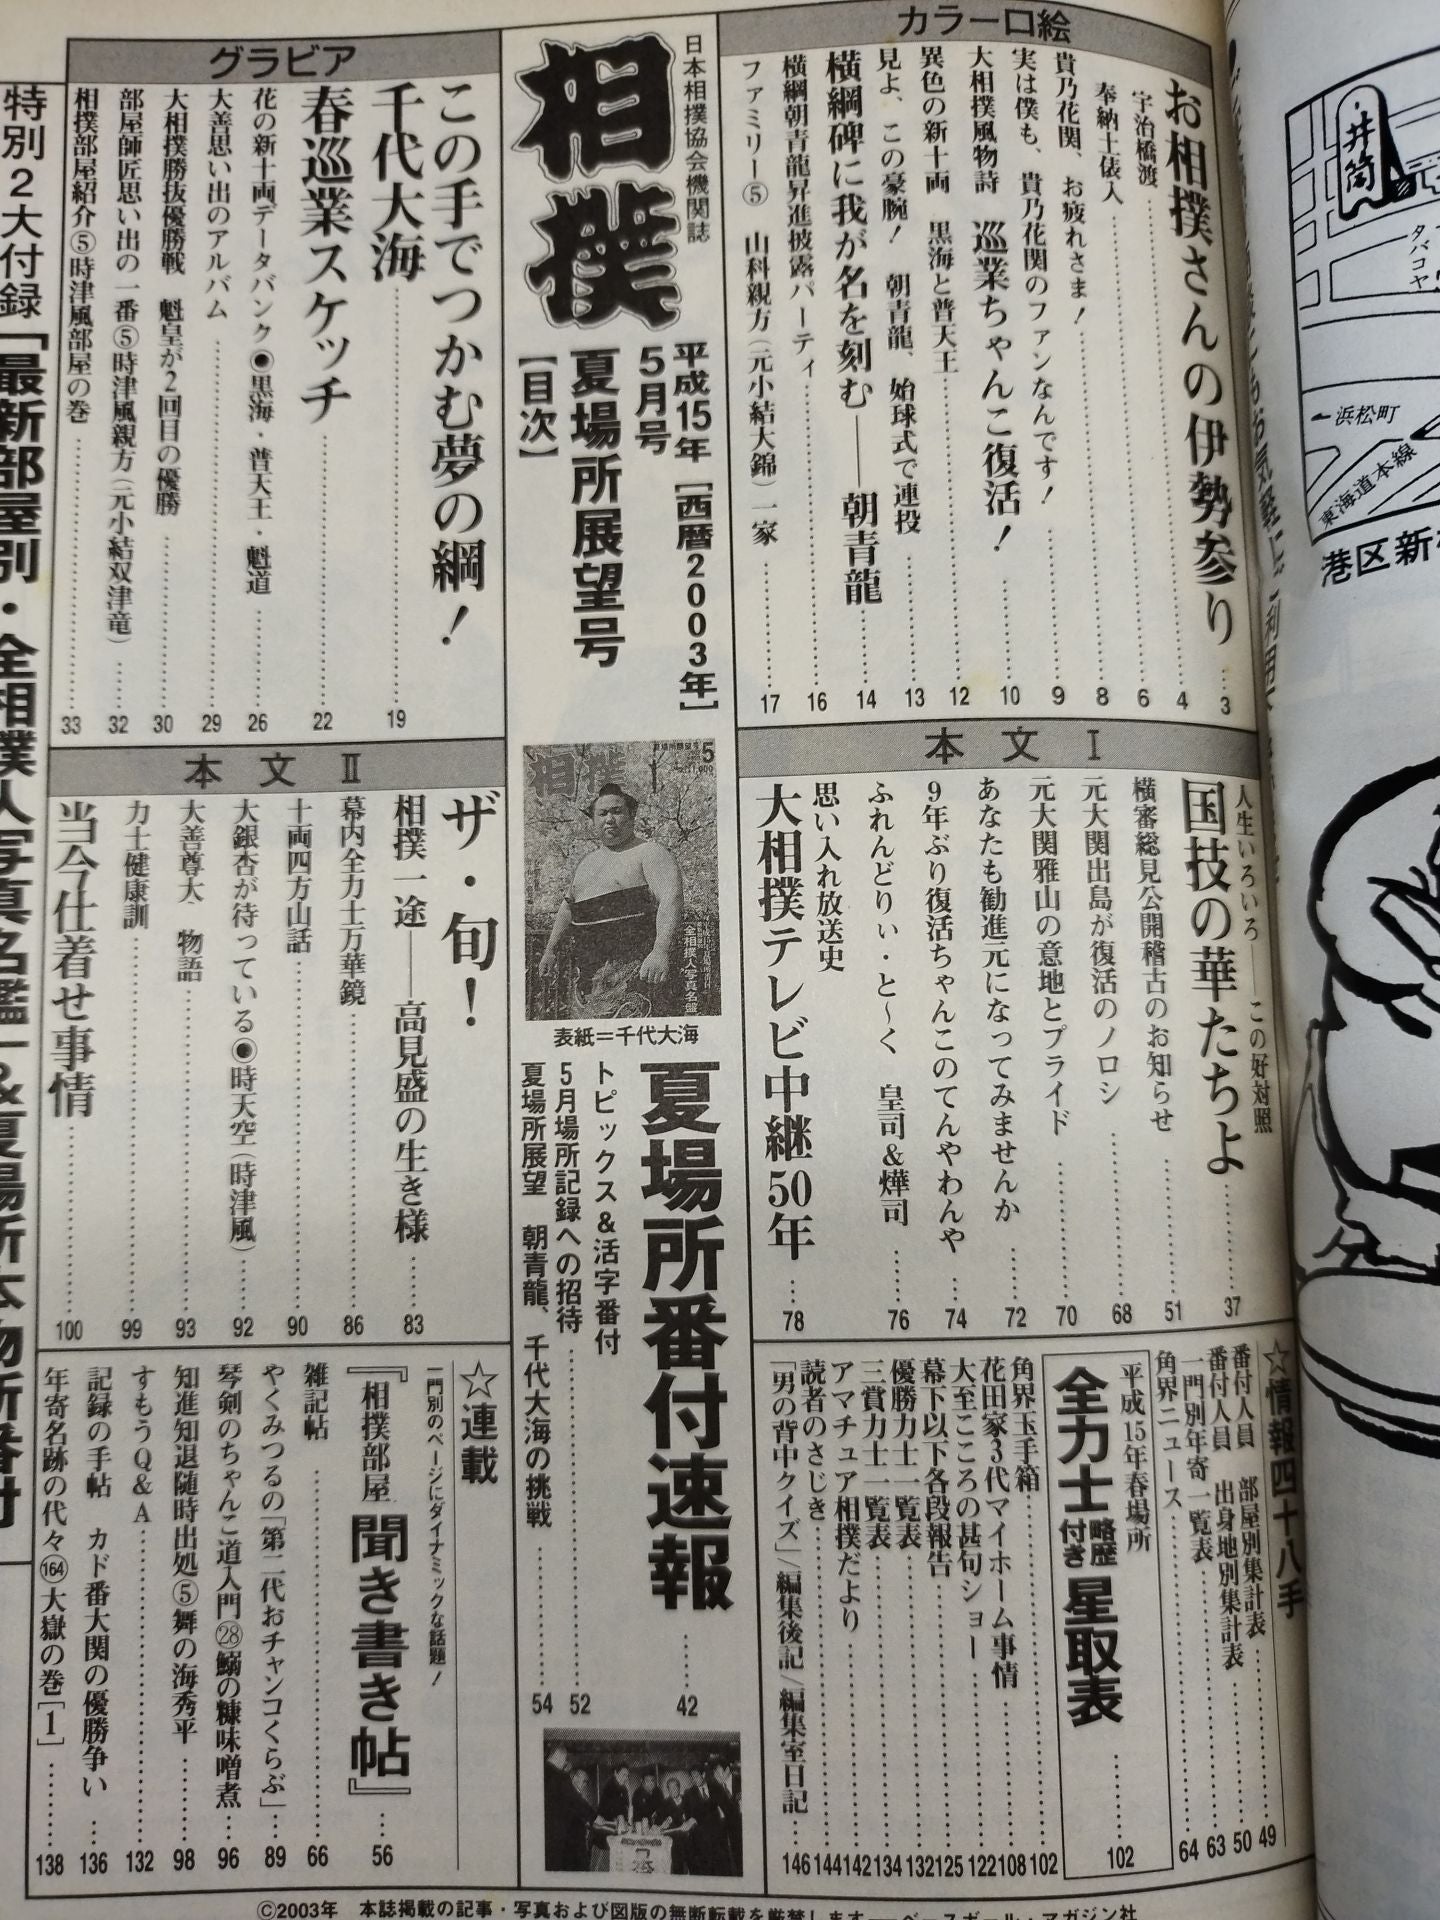 カラー口絵
お相撲さんの伊勢参り……3
宇治橋渡……4
奉納土俵入……6
貴乃花関、お疲れさま！……8
実は僕も、貴乃花関のファンなんです！……9
大相撲風物詩 巡業ちゃんこ復活！……10
異色の新十両 黒海と普天王……12
見よ、この豪腕！ 朝青龍、始球式で連投……13
横綱碑に我が名を刻む――朝青龍……14
横綱朝青龍昇進披露パーティ……16
ファミリー⑤ 山科親方（元小結大錦）一家……17
日本相撲協会機関誌
相撲
平成15年［西暦2003年］
5月号
夏場所展望号
［目次］
グラビア
この手でつかむ夢の綱！
千代大海……19
春巡業スケッチ……22
花の新十両データバンク◉黒海・普天王・魁道……26
大善思い出のアルバム……29
大相撲勝抜優勝戦 魁皇が2回目の優勝……30
部屋師匠思い出の一番⑤時津風親方（元小結双津竜）……32
相撲部屋紹介⑤時津風部屋の巻……33
特別2大付録「最新部屋別・全相撲人写真名鑑」&夏場所本物所番付
本文Ⅰ
人生いろいろ――この好対照
国技の華たちよ……37
横審総見公開稽古のお知らせ……51
元大関出島が復活のノロシ……68
元大関雅山の意地とプライド……70
あなたも勧進元になってみませんか……72
9年ぶり復活ちゃんこのてんやわんや……74
ふれんどりぃ・と～く 皇司&燁司……76
思い入れ放送史
大相撲テレビ中継50年……78
5
相撲
全相撲人写真名鑑
表紙＝千代大海
夏場所番付速報……42
トピックス&活字番付
5月場所記録への招待……52
夏場所展望 朝青龍、千代大海の挑戦……54
本文Ⅱ
ザ・旬！
相撲一途――高見盛の生き様……83
幕内全力士万華鏡……86
十両四方山話……90
大銀杏が待っている◉時天空（時津風）……92
大善尊大 物語……93
力士健康訓……99
当今仕着せ事情……100
☆情報四十八手
番付人員 部屋別集計表……49
番付人員 出身地別集計表……50
一門別年寄一覧表……63
角界ニュース……64
平成15年春場所
全力士略歴付き星取表……102
角界玉手箱……102
花田家3代マイホーム事情……108
大至こころの甚句ショー……122
幕下以下各段報告……125
優勝力士一覧表……132
三賞力士一覧表……134
アマチュア相撲だより……142
読者のさじき……144
「男の背中クイズ」/編集後記/編集室日記……146
☆連載
一門別のページにダイナミックな話題！
『相撲部屋 聞き書き帖』……56
雑記帖……66
やくみつるの「第二代おチャンコくらぶ」……89
琴剣のちゃんこ道入門㉘鰯の糠味噌煮……96
知進知退随時出処⑤舞の海秀平……98
すもうQ&A……132
記録の手帖 カド番大関の優勝争い……136
年寄名跡の代々164大嶽の巻［1］……138
©2003年 本誌掲載の記事・写真および図版の無断転載を厳禁します――ベースボール・マガジン社
井筒
タバコヤ
←浜松町
東海道本線
港区新